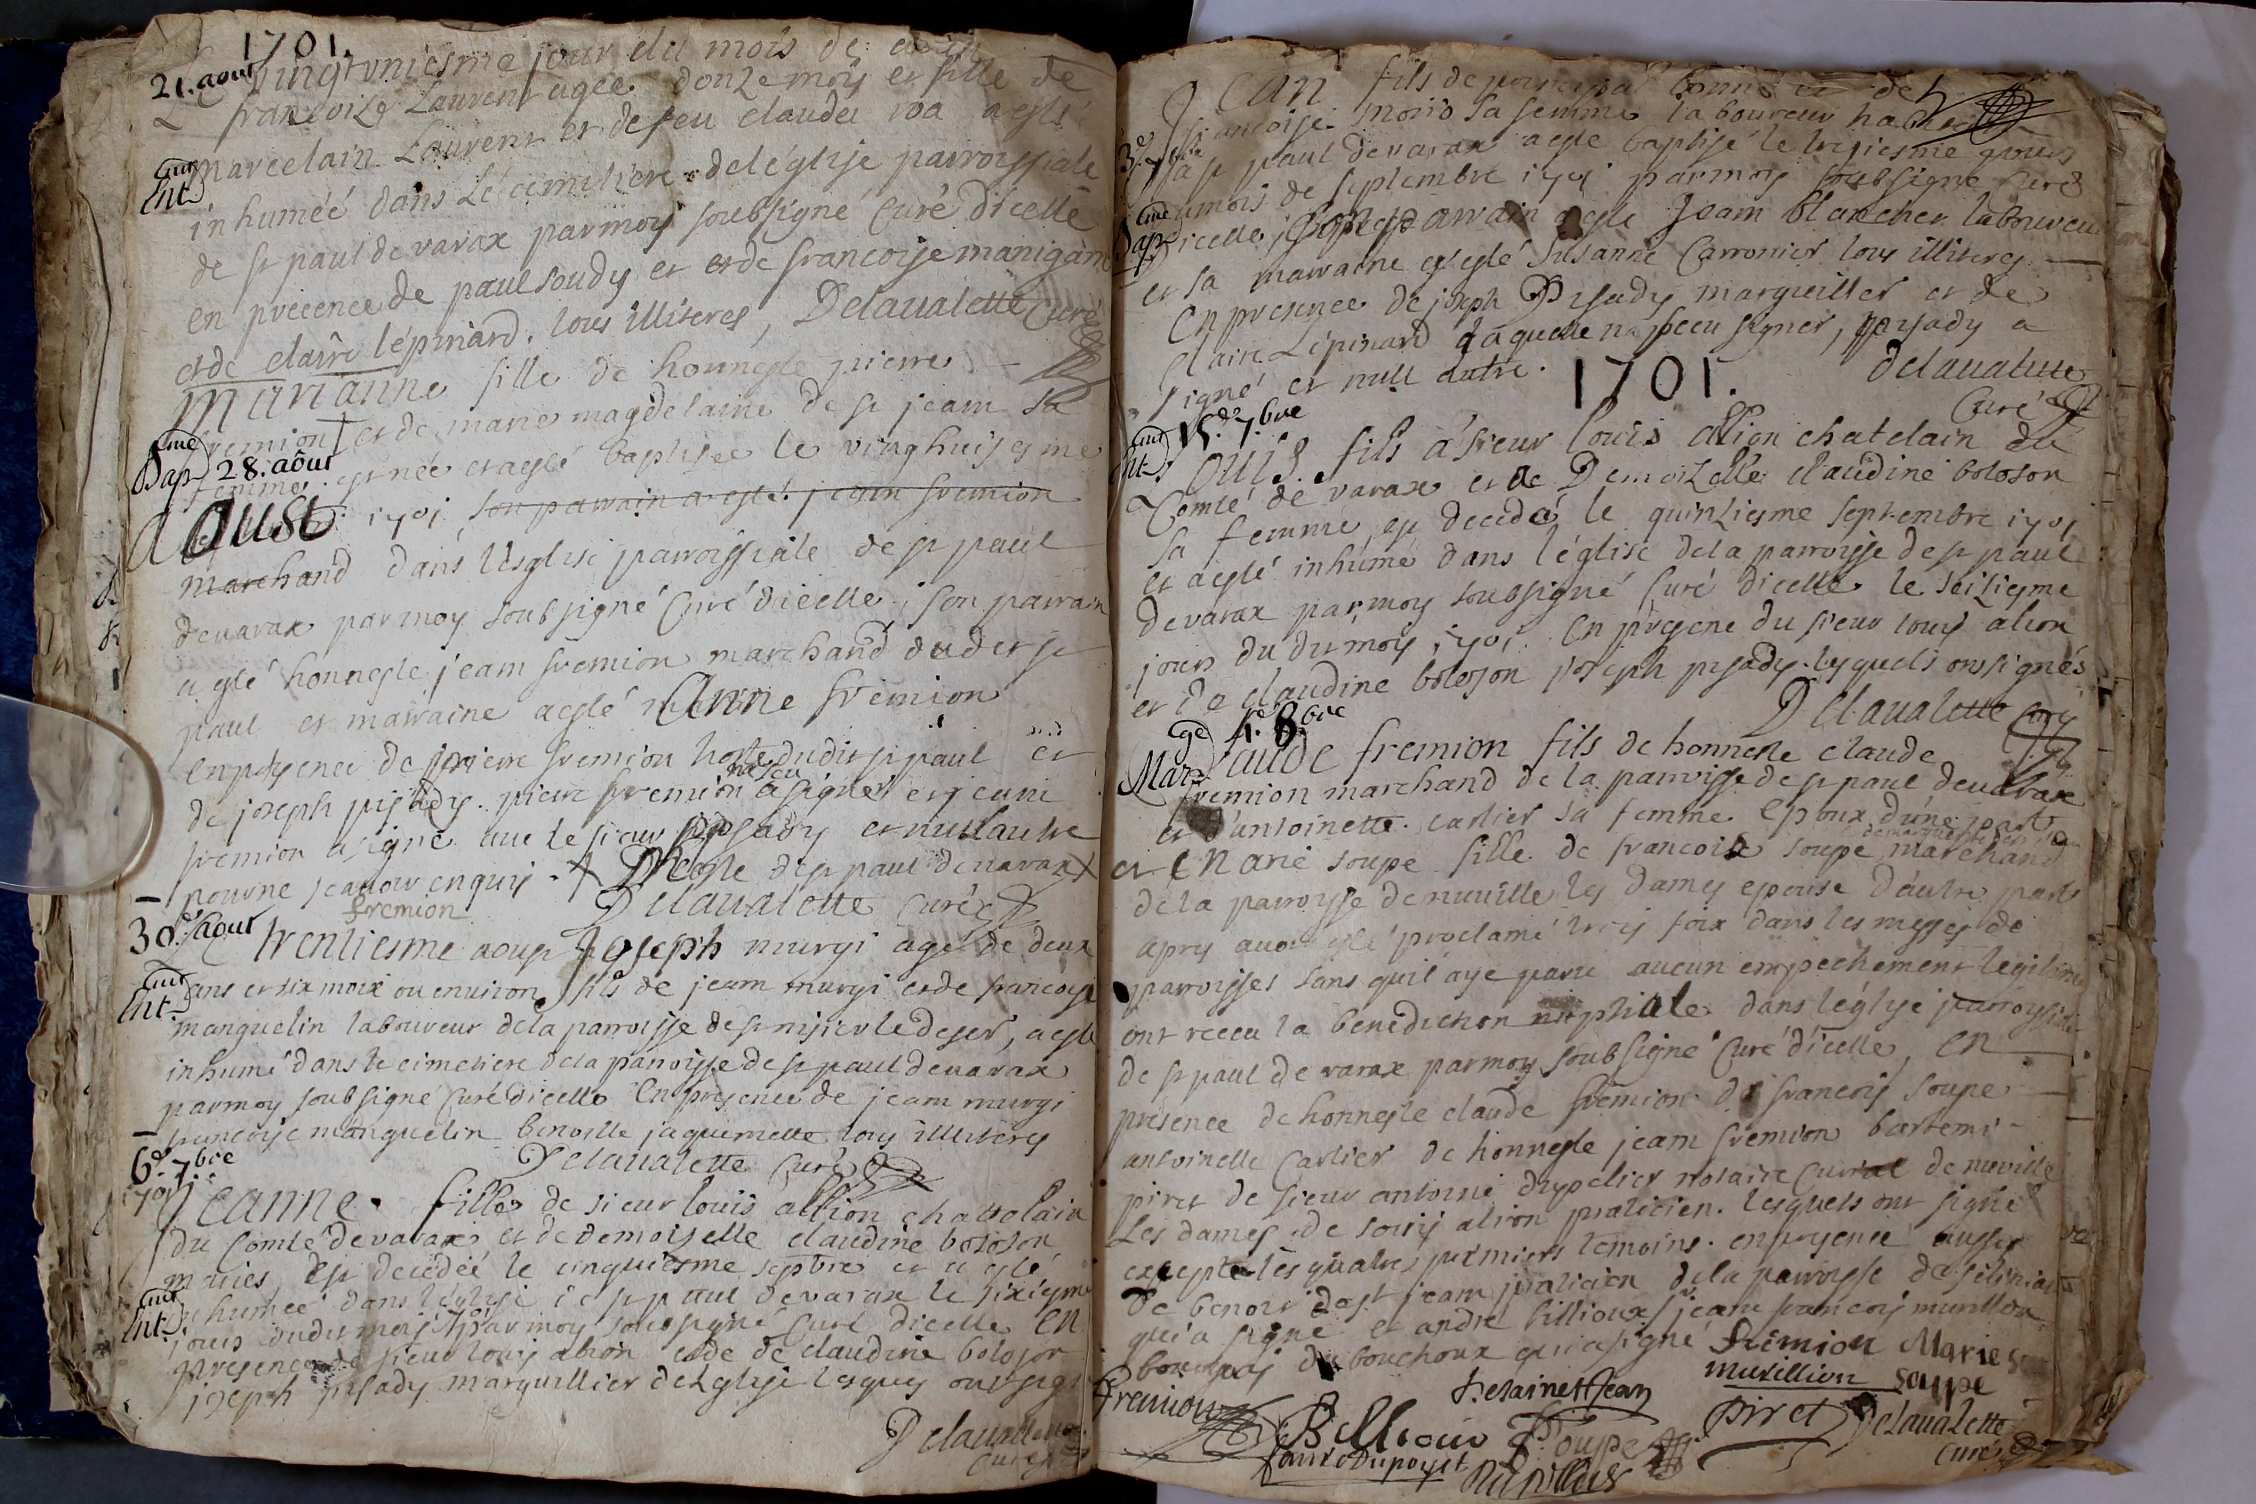 1701.
21. aout
vingtuniesme jour du mois de
francoise Laurent agée donze moys et fille de
marcelain Laurent et defeu claude a esté
ent.
inhuméé dans Le cemitiere deléglise parroissiale
de st paul de varax parmoy soubsigné Curé dicelle
en precence de paul soudy et et de francoise manigan
et de claire lépinard. tous illiteres, Delaualette Curé
Marianne fille de honneste pierre
fremion et de marie magdelaine de st jean sa
Bap. 28. aôut
femme est née et a esté baptisée le vinghuisiesme
Aoust 1701 son parrain a esté jean fremion
marchand dans léglise parroissiale de st paul
deuarax parmoy soubsigné Curé dicelle, son parrain
a esté honneste jean fremion marchand dudit st
paul et marraine a esté Anne fremion
enpresence de pierre fremion hoste dudit st paul et
de joseph pisady. pierre fremion a signé et jean
fremion a signé aue le sieur pisady et null autre
pource
fremion Delaualette curé
30. aout
Le trentiesme aoust Joseph murgi agé de deux
ans et six moix ou enuiron fils de jean murgi et de francoise
ent.
manguelin laboureur dela parroisse de st nisier le desert, a esté
inhumé dans le cimetiere dela parroisse de st paul deuarax
parmoy soubsigné Curé dicelle En presence de jean murgi
francoise manguelin benoitte jaquemette tous illiteres
6. 7bre
Delaualette Curé
1701
Jeanne. fille de sieur louis allion chattelain
du Comté devarax et de demoiselle claudine boloson
mariés est decédéé le cinquiesme septbre et a esté
inhumée dans léglise de st paul devarax le sixiesme
ent.
jour dudit mois parmoy soubsigné Curé dicelle En
presence de sieur louis alion et de claudine boloson
joseph pisady marguillier de Léglise lesquels ont signé
Delaualette
curé
Jean fils de
francoise moris sa femme laboureur
3. 7bre
st paul devarax a esté baptisé le troisiesme jours
dumois de septembre 1701 parmoy soubsigné Curé
Bap.
dicelle, son parrain a esté Jean blancher laboureur
et sa marraine a esté Susanne Carronier tous illiteres
En presence de joseph Pisady marguillier et de
claire Lépinard laquelle na sceu signer, pisady a
signé et null autre. 1701. delaualette
Curé
15. 7bre
ent.
Louis. fils à sieur louis allion chatelain du
Comté de varax et de Demoizelle claudine boloson
sa femme, est decedé le quinziesme septembre 1701
et a esté inhumé dans léglise dela parroisse de st paul
devarax parmoy soubsigné Curé dicelle le seiziesme
jour du dit mois 1701. En presence du sieur louys alion
et de claudine boloson joseph pisady lesquels ont signés
Delaualette Curé
4. 8bre
Mar.
Claude fremion fils de honneste claude
fremion marchand de la parroisse de st paul deuarax
et d'antoinette carlier sa femme Epoux dune part
et Marie soupe fille de francois soupe marchand
dela parroisse deneuuille les dames epouse dautre part
apres auoir esté proclamé trois foix dans les messes de
parroisses sans quil aye paru aucun empechement legitime
ont receu la benediction nuptiale dans léglise parroyssiale
de st paul de varax parmoy soubsigné Curé dicelle, En
présence de honneste claude fremion de francois soupe
antoinette carlier de honneste jean fremion bartemi
piret de sieur antoine dupelier notaire Curial de neuville
Les dames de louis alion praticien. lesquels ont signé
excepté les quatres premiers temoins. enpresence aussy
de benoit jean praticien dela parroisse de
qui a signé et andre billioux jean francois murillon
bourgeois du bouchoux qui a signé fremion Marie
fremion Jean murillion soupe
Billioux Soupe piret Delaualette
Curé